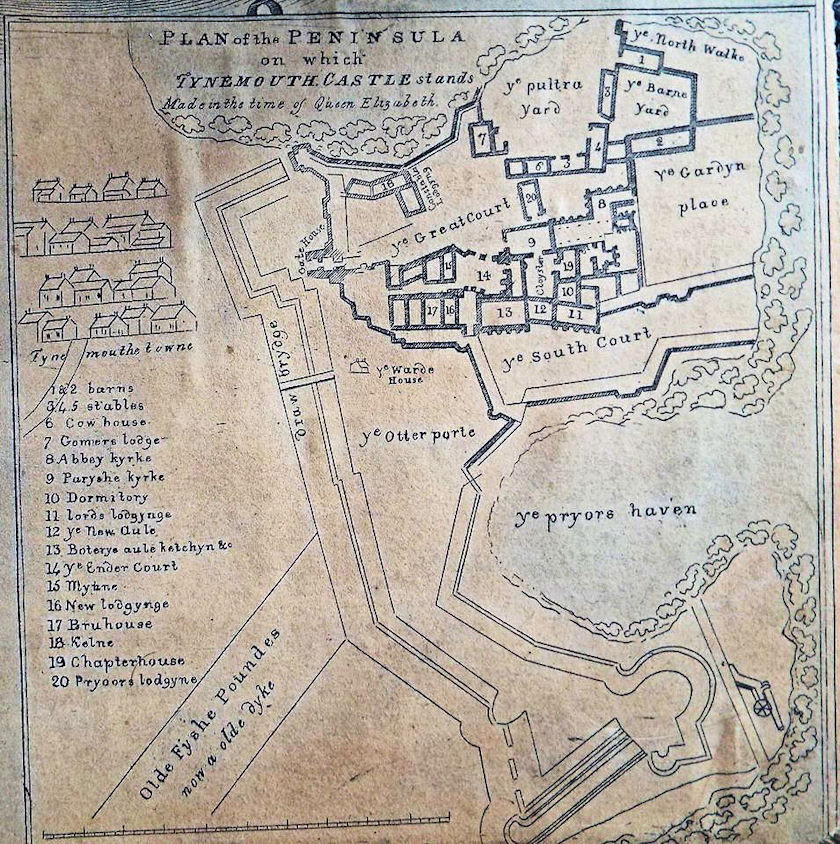 PLAN of the PENINSULA
on which
TYNEMOUTH CASTLE stands
Made in the time of Queen Elizabeth.
ye North Walke
1
ye pultra
yard
3
ye Barne
yard
7
4
2
6
3
ye Gardyn
place
18
Constables
Lodgyng
20
8
ye Great Court
9
Gate House
14
Cloyster
19
10
17
16
13
12
11
ye South Court
Tyne mouthe towne
Draw brydge
ye Warde
House
ye Otter porte
1&2 barns
3,4,5 stables
6 Cow house
7 Gomers lodge
8 Abbey kyrke
9 Paryshe kyrke
10 Dormitory
11 lords lodgynge
12 ye New Aule
13 Boterye aule ketchyn &c
14 ye Ender Court
15 Mylne
16 New lodgynge
17 Bruhouse
18 Kelne
19 Chapterhouse
20 Pryoors lodgyne
ye pryors haven
Olde Fyshe Poundes
now a olde dyke